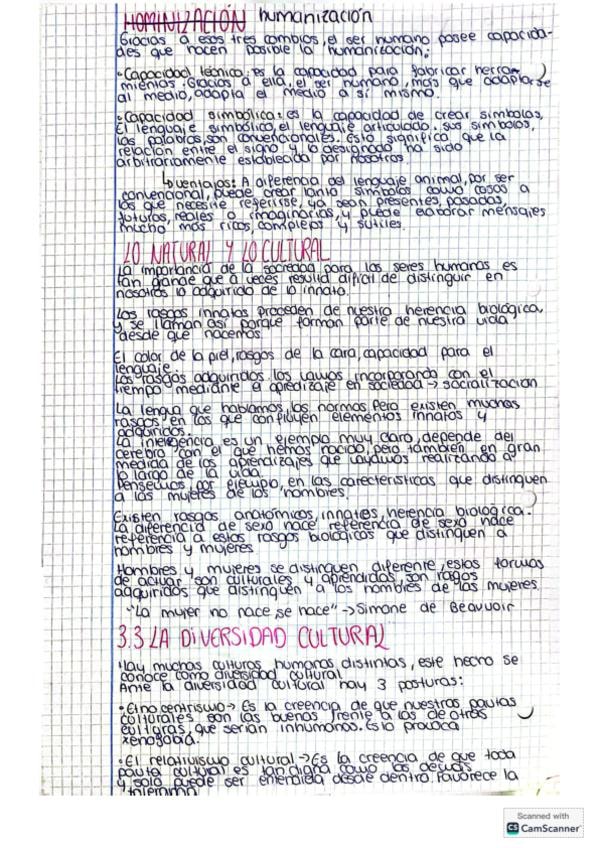 HOMINIZACIÓN humanización
Gracias a esos tres cambios, el ser humano posee capacida-
des que hacen posible la humanización:
•Capacidad técnica: es la capacidad para fabricar herra-
mientas. Gracias a ella, el ser humano, más que adaptarse
al medio, adapta el medio a sí mismo.
•Capacidad simbólica: es la capacidad de crear símbolos,
El lenguaje simbólico, el lenguaje articulado. Sus símbolos,
las palabras, son convencionales. Esto significa que la
relación entre el signo y lo designado ha sido
arbitrariamente establecida por nosotros.
↳ventajas: A diferencia del lenguaje animal, por ser
convencional, puede crear tanto símbolos como cosas a
los que necesite referirse, ya sean presentes, pasadas,
futuras, reales o imaginarias, y puede elaborar mensajes
mucho más ricos, complejos y sutiles.
LO NATURAL Y LO CULTURAL
La importancia de la sociedad para los seres humanos es
tan grande que a veces resulta difícil de distinguir en
nosotros lo adquirido de lo innato.
Los rasgos innatos proceden de nuestra herencia biológica,
y se llaman así porque forman parte de nuestra vida
desde que nacemos.
El color de la piel, rasgos de la cara, capacidad para el
lenguaje.
Los rasgos adquiridos los vamos incorporando con el
tiempo mediante el apredizaje en sociedad → socialización
La lengua que hablamos, las normas. Pero existen muchos
rasgos en los que confluyen elementos innatos y
adquiridos.
La inteligencia es un ejemplo muy claro, depende del
cerebro con el que hemos nacido, pero también en gran
medida de los aprendizajes que vayamos realizando a
lo largo de la vida.
Pensemos, por ejemplo, en las características que distinguen
a las mujeres de los hombres.
Existen rasgos anatómicos, innatos, herencia biológica.
La diferencia de sexo hace referencia de sexo hace
referencia a estos rasgos biológicos que distinguen a
hombres y mujeres
Hombres y mujeres se distinguen diferente, estas formas
de actuar son culturales y aprendidas, son rasgos
adquiridos que distinguen a los hombres de las mujeres.
"La mujer no nace, se hace" → Simone de Beauvoir
3.3 LA DIVERSIDAD CULTURAL
Hay muchas culturas humanas distintas, este hecho se
conoce como diversidad cultural.
Ante la diversidad cultural hay 3 posturas:
•Etnocentrismo → Es la creencia de que nuestras pautas
culturales son las buenas frente a las de otras
culturas, que serían inhumanas. Esto provoca
xenofobia.
•El relativismo cultural → Es la creencia de que toda
pauta cultural es tan digna como las demás
y solo puede ser entendida desde dentro. Favorece la
tolerancia
Scanned with
CS CamScanner